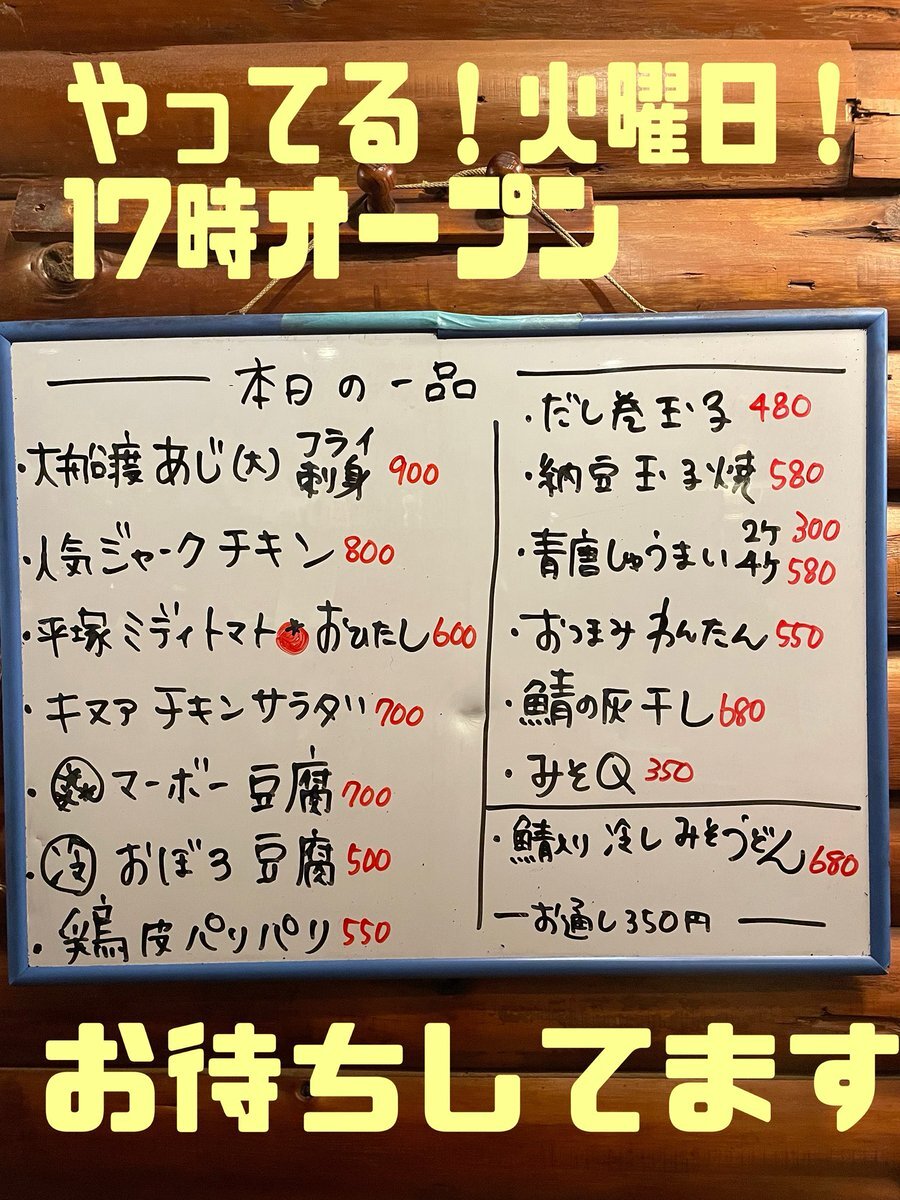 やってる！火曜日！
17時オープン
本日の一品
・大船渡 あじ(大) フライ 刺身 900
・人気ジャークチキン 800
・平塚ミディトマトおひたし 600
・キヌア チキンサラダ 700
・マーボー豆腐 700
・冷 おぼろ豆腐 500
・鶏皮パリパリ 550
・だし巻玉子 480
・納豆玉子焼 580
・青唐しゅうまい 2ケ 300
4ケ 580
・おつまみわんたん 550
・鯖の灰干し 680
・みそQ 350
・鯖入り 冷しみそうどん 680
お通し350円
お待ちしてます